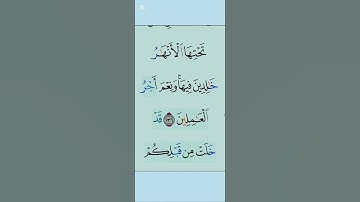 تَحْتِهَا ٱلْأَنْهَٰرُ
خَٰلِدِينَ فِيهَا ۚ وَنِعْمَ أَجْرُ
ٱلْعَٰمِلِينَ ۝١٣٦ قَدْ
خَلَتْ مِن قَبْلِكُمْ